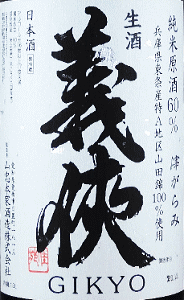 純米原酒60% 津がらみ
兵庫県東条産特A地区山田錦100%使用
生酒
義侠
日本酒
山忠本家酒造株式会社
GIKYO